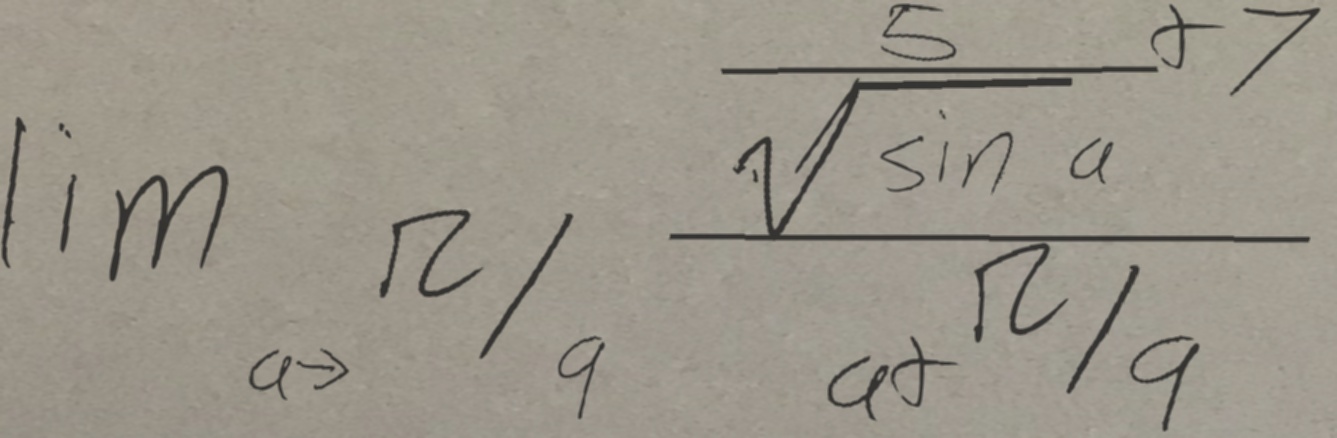 \lim_{a \to \pi/9} \frac{\frac{5}{\sqrt{\sin a}} + 7}{a + \pi/9}